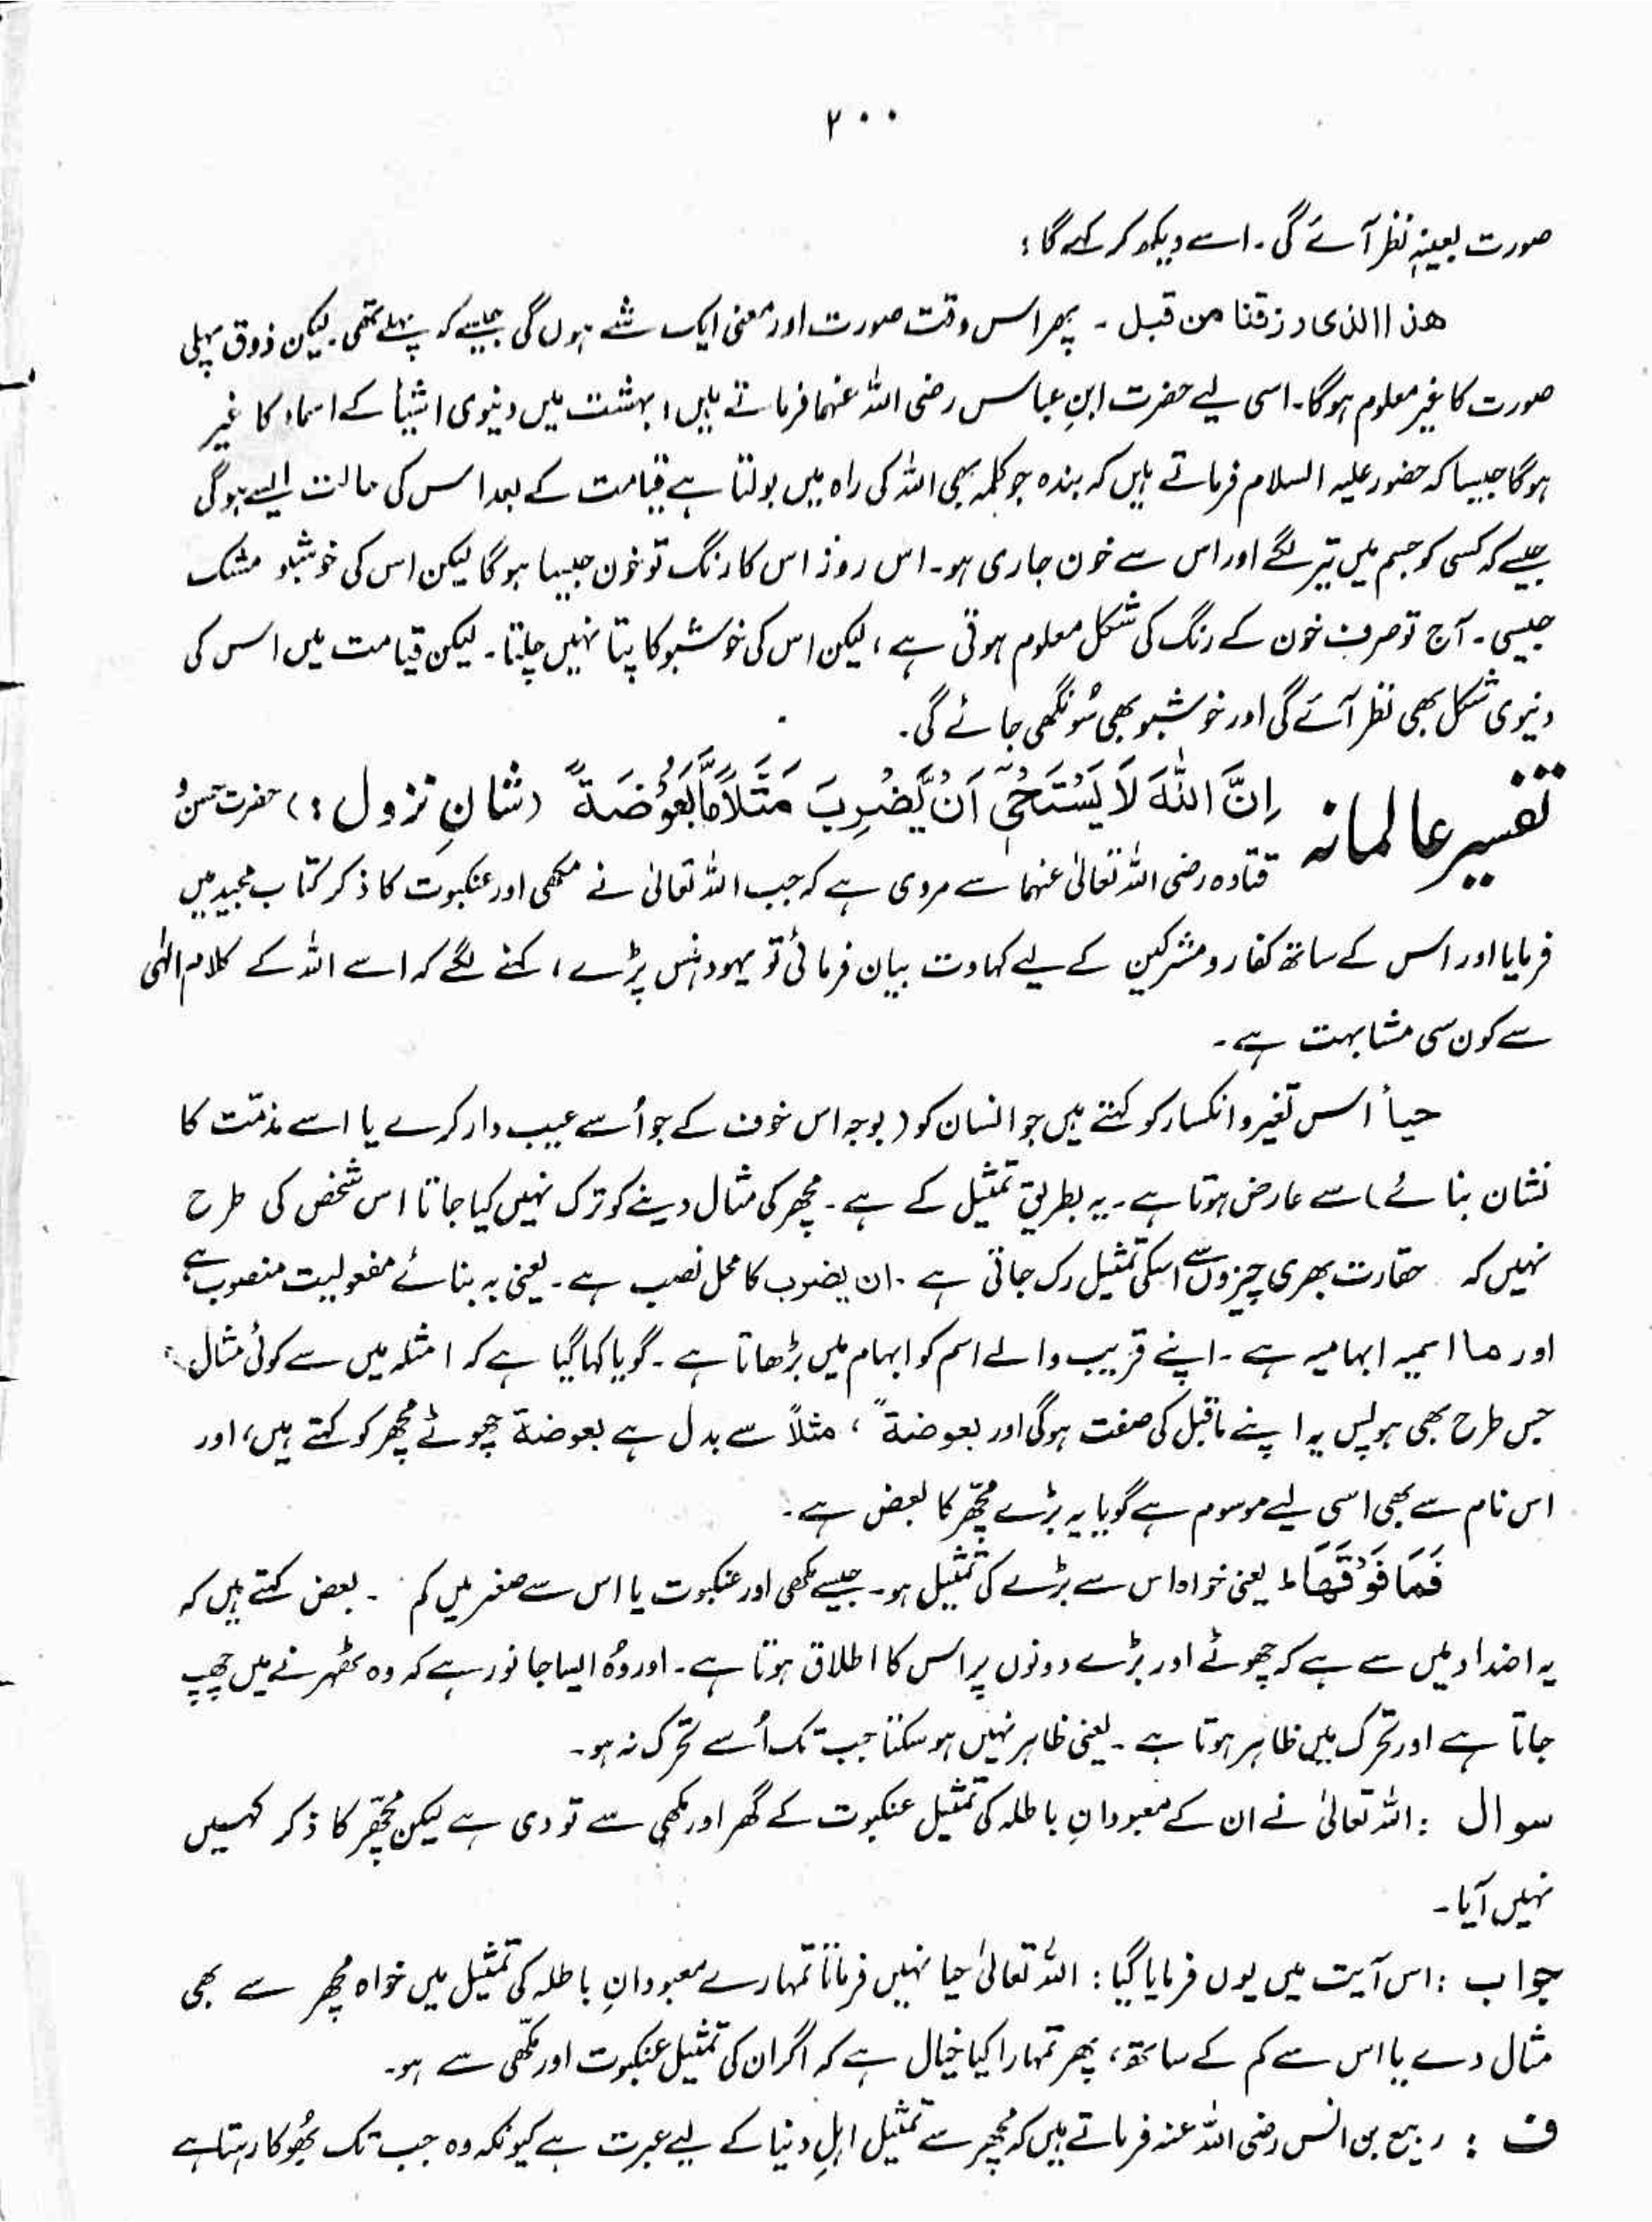 ۲۰۰
صورت بعینہٖ نظر آئے گی۔ اسے دیکھ کر کہے گا :
ھذا الذی رزقنا من قبل ۔ پھر اس وقت صورت اور معنی ایک شے ہوں گی جیسے کہ پہلے تھی۔ لیکن ذوق پہلی
صورت کا غیر معلوم ہوگا۔ اسی لیے حضرت ابنِ عباس رضی اللہ عنہما فرماتے ہیں، بہشت میں دنیوی اشیأ کے اسماء کا غیر
ہوگا جیسا کہ حضور علیہ السلام فرماتے ہیں کہ بندہ جو کلمہ بھی اللہ کی راہ میں بولتا ہے قیامت کے بعد اس کی حالت ایسے ہوگی
جیسے کہ کسی کو جسم میں تیر لگے اور اس سے خون جاری ہو۔ اس روز اس کا رنگ تو خون جیسا ہوگا لیکن اس کی خوشبو مشک
جیسی ۔ آج تو صرف خون کے رنگ کی شکل معلوم ہوتی ہے، لیکن اس کی خوشبو کا پتا نہیں چلتا۔ لیکن قیامت میں اس کی
دنیوی شکل بھی نظر آئے گی اور خوشبو بھی سُونگھی جائے گی۔
تفسیر عالمانہ اِنَّ اللّٰهَ لَا یَسْتَحْیٖۤ اَنْ یَّضْرِبَ مَثَلًا مَّا بَعُوْضَةً (شانِ نزول :) حضرت حسن و
قتادہ رضی اللہ تعالیٰ عنہما سے مروی ہے کہ جب اللہ تعالیٰ نے مکھی اور عنکبوت کا ذکر کتاب مجید میں
فرمایا اور اس کے ساتھ کفار و مشرکین کے لیے کہاوت بیان فرمائی تو یہود ہنس پڑے، کہنے لگے کہ اسے اللہ کے کلام الٰہی
سے کون سی مشابہت ہے۔
حیأ اس تغیر و انکسار کو کہتے ہیں جو انسان کو (بوجہ اس خوف کے جو اُسے عیب دار کرے یا اسے مذمّت کا
نشان بنائے) سے عارض ہوتا ہے۔ یہ بطریق تمثیل کے ہے۔ مچھر کی مثال دینے کو ترک نہیں کیا جاتا اس شخص کی طرح
نہیں کہ حقارت بھری چیزوں سے اسکی تمثیل رک جاتی ہے ۔ ان یضرب کا محل نصب ہے۔ یعنی بہ بنائے مفعولیت منصوب ہے،
اور ما اسمیہ ابہامیہ ہے ۔ اپنے قریب والے اسم کو ابہام میں بڑھاتا ہے ۔ گویا کہا گیا ہے کہ امثلہ میں سے کوئی مثال
جس طرح بھی ہو پس یہ اپنے ماقبل کی صفت ہوگی اور بعوضةً، مثلاً سے بدل ہے بعوضة چھوٹے مچھر کو کہتے ہیں، اور
اس نام سے بھی اسی لیے موسوم ہے گویا یہ بڑے مچھّر کا بعض ہے۔
فَمَا فَوْقَهَا ط یعنی خواہ اس سے بڑے کی تمثیل ہو۔ جیسے مکھی اور عنکبوت یا اس سے صغر میں کم ۔ بعض کہتے ہیں کہ
یہ اضداد میں سے ہے کہ چھوٹے اور بڑے دونوں پر اس کا اطلاق ہوتا ہے۔ اور وُہ ایسا جانور ہے کہ وہ ٹھہرنے میں چھپ
جاتا ہے اور تحرک میں ظاہر ہوتا ہے ۔ یعنی ظاہر نہیں ہو سکتا جب تک اُسے تحرک نہ ہو۔
سوال : اللہ تعالیٰ نے ان کے معبودانِ باطلہ کی تمثیل عنکبوت کے گھر اور مکھی سے تو دی ہے لیکن مچھّر کا ذکر کہیں
نہیں آیا۔
جواب : اس آیت میں یوں فرمایا گیا : اللہ تعالیٰ حیا نہیں فرماتا تمہارے معبودانِ باطلہ کی تمثیل میں خواہ مچھر سے بھی
مثال دے یا اس سے کم کے ساتھ، پھر تمہارا کیا خیال ہے کہ اگر ان کی تمثیل عنکبوت اور مکّھی سے ہو۔
ف : ربیع بن انس رضی اللہ عنہ فرماتے ہیں کہ مچھر سے تمثیل اہلِ دنیا کے لیے عبرت ہے کیونکہ وہ جب تک بُھوکا رہتا ہے